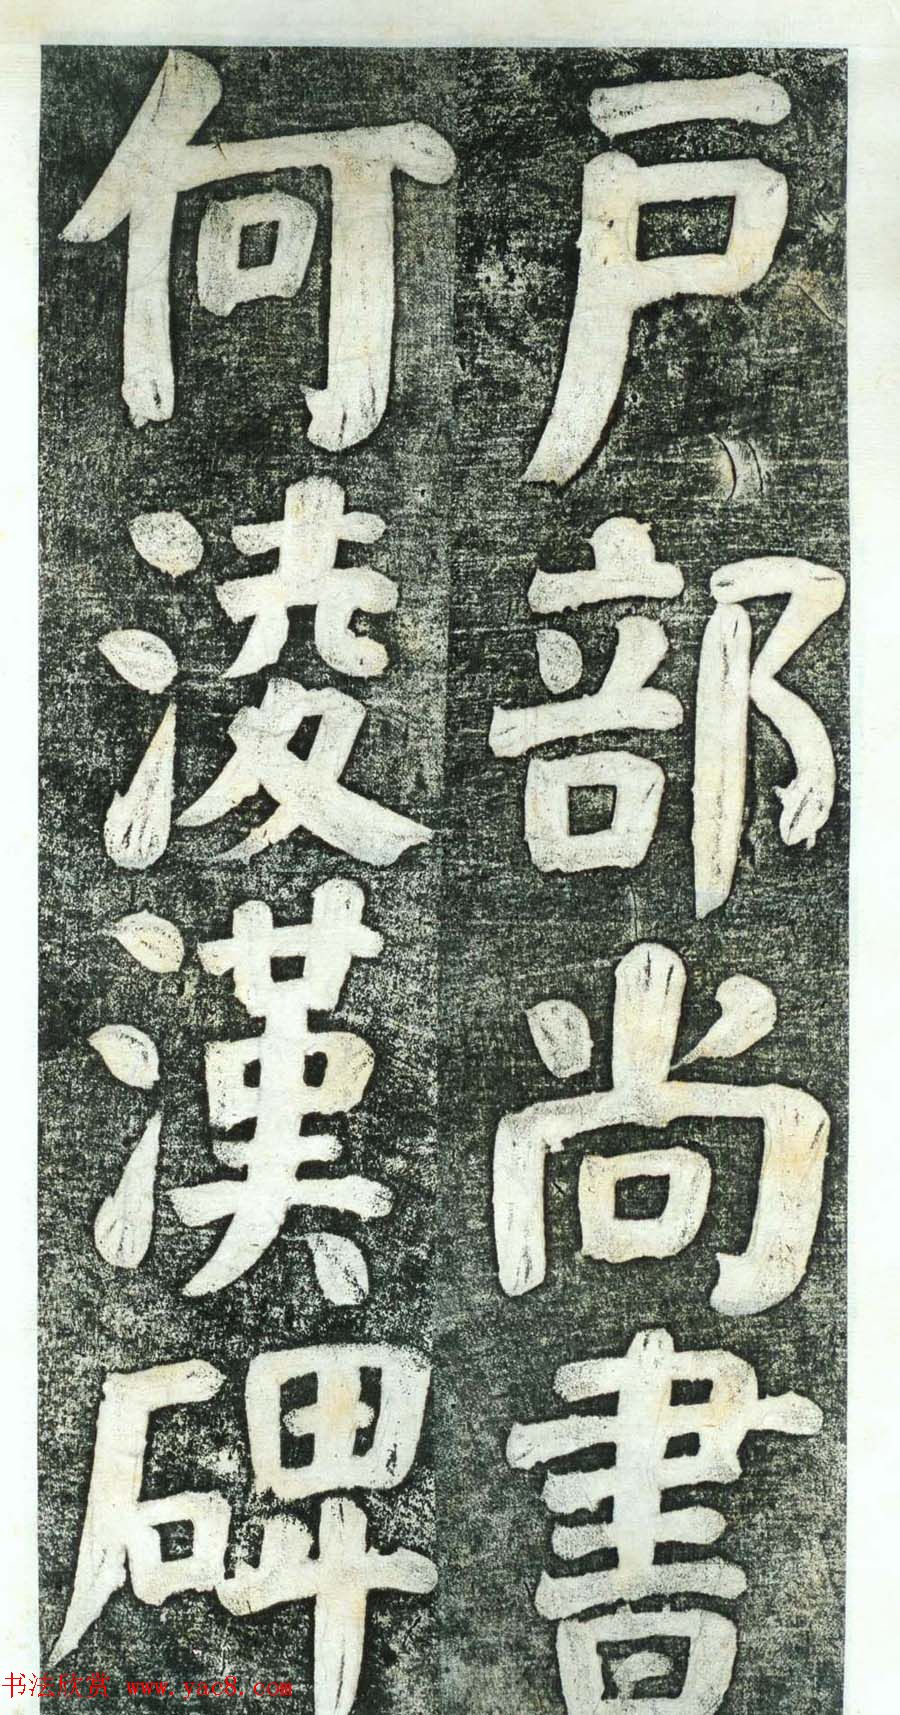 户部尚書
何淩漢碑
书法欣赏 www.yac8.com